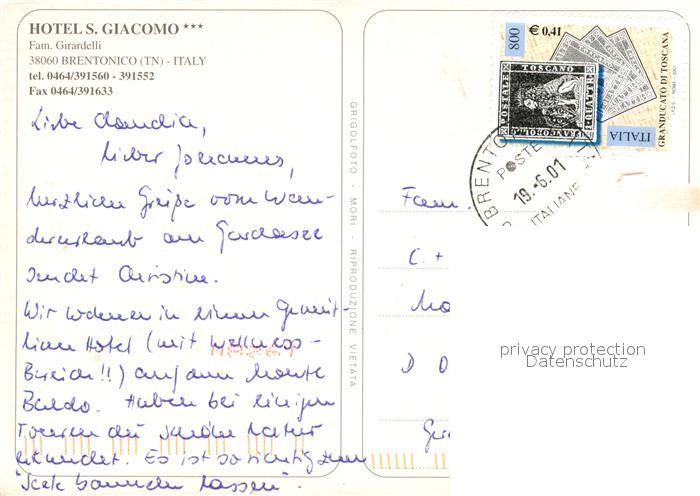 HOTEL S. GIACOMO ***
Fam. Girardelli
38060 BRENTONICO (TN) - ITALY
tel. 0464/391560 - 391552
Fax 0464/391633
Liebe Claudia,
lieber Johannes,
herzliche Grüße vom Wan-
derurlaub am Gardasee
sendet Christine.
Wir wohnen in einem gemüt-
lichen Hotel (mit Wellness-
Bereich!!) auf dem Monte
Baldo. Haben bei einigen
Touren die schöne Natur
erkundet. Es ist so richtig zum
"Seele baumeln lassen".
GRIGOLFOTO - MORI - RIPRODUZIONE VIETATA
800
€ 0,41
POSTALE TOSCANO
ITALIA
GRANDUCATO DI TOSCANA
I.P.Z.S. - ROMA - 2001
BRENTO
POSTE
19.6.01
ITALIANE
Fam.
C. +
D
privacy protection
Datenschutz